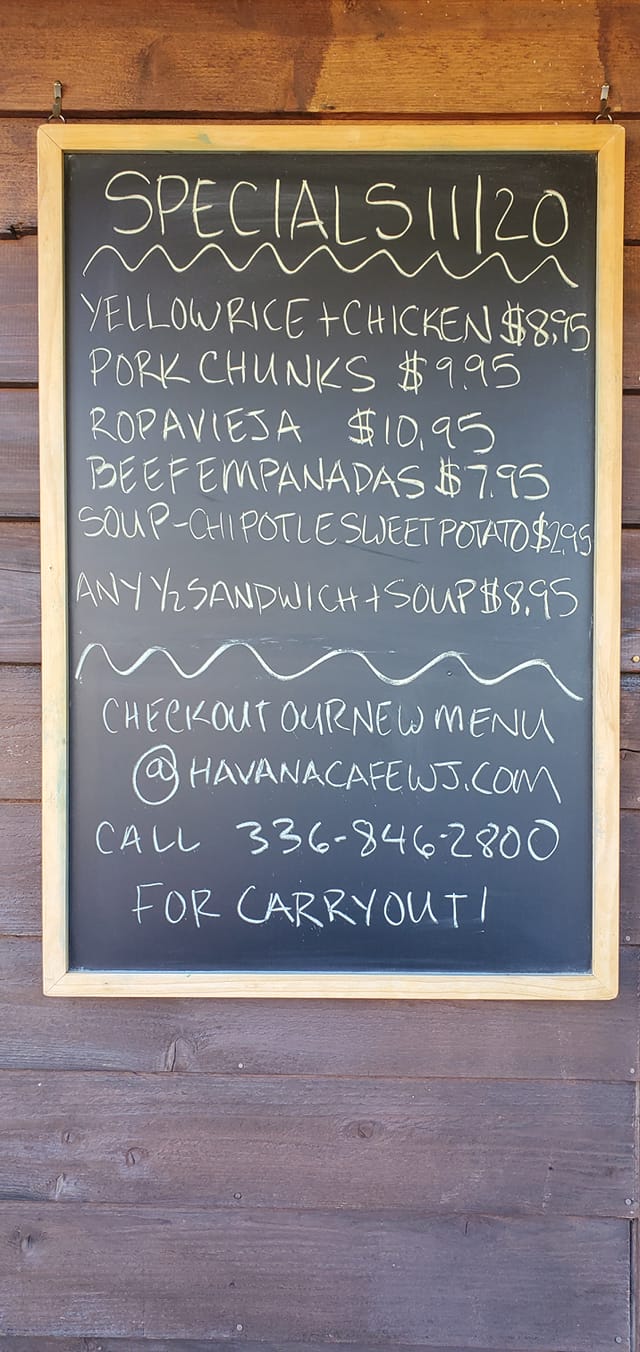 SPECIALS 11/20
YELLOW RICE + CHICKEN $8.95
PORK CHUNKS $9.95
ROPA VIEJA $10.95
BEEF EMPANADAS $7.95
SOUP - CHIPOTLE SWEET POTATO $2.95
ANY 1/2 SANDWICH + SOUP $8.95
CHECK OUT OUR NEW MENU
@ HAVANACAFEWJ.COM
CALL 336-846-2800
FOR CARRYOUT!